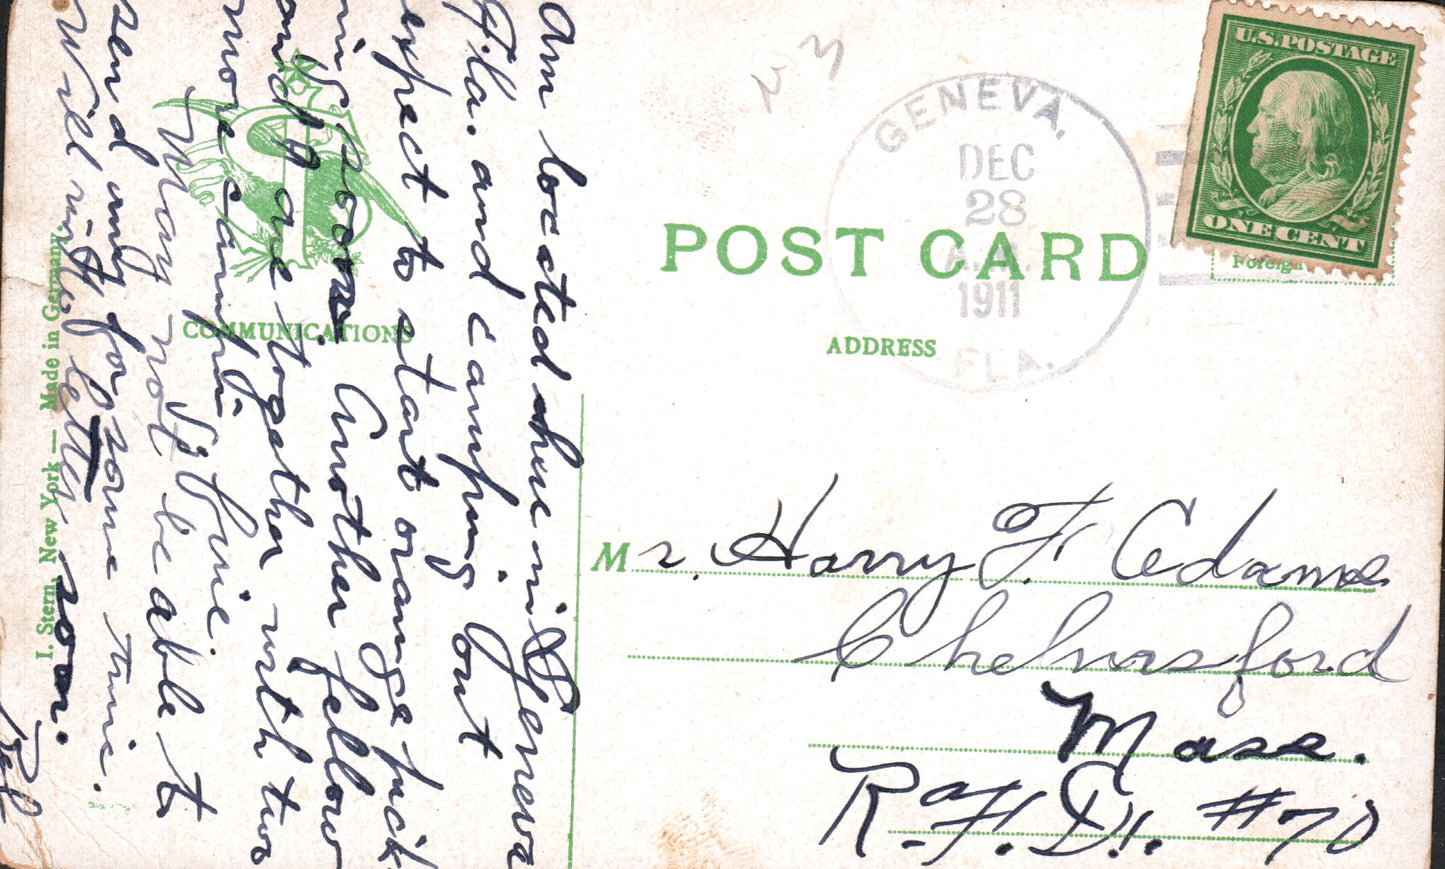 Am located here in Geneva
Fla. and camping out
expect to start orange pick
ing soon. Another fellow
and I are together with two
more camping
May not be able to
send any for some time.
Will write letter soon.
COMMUNICATIONS
I. Stern, New York — Made in Germany.
U.S. POSTAGE
ONE CENT
Foreign
GENEVA,
DEC
28
A.M.
1911
FLA.
POST CARD
ADDRESS
Mr. Harry F. Adams
Chelmsford
Mass.
R.F.D. #70